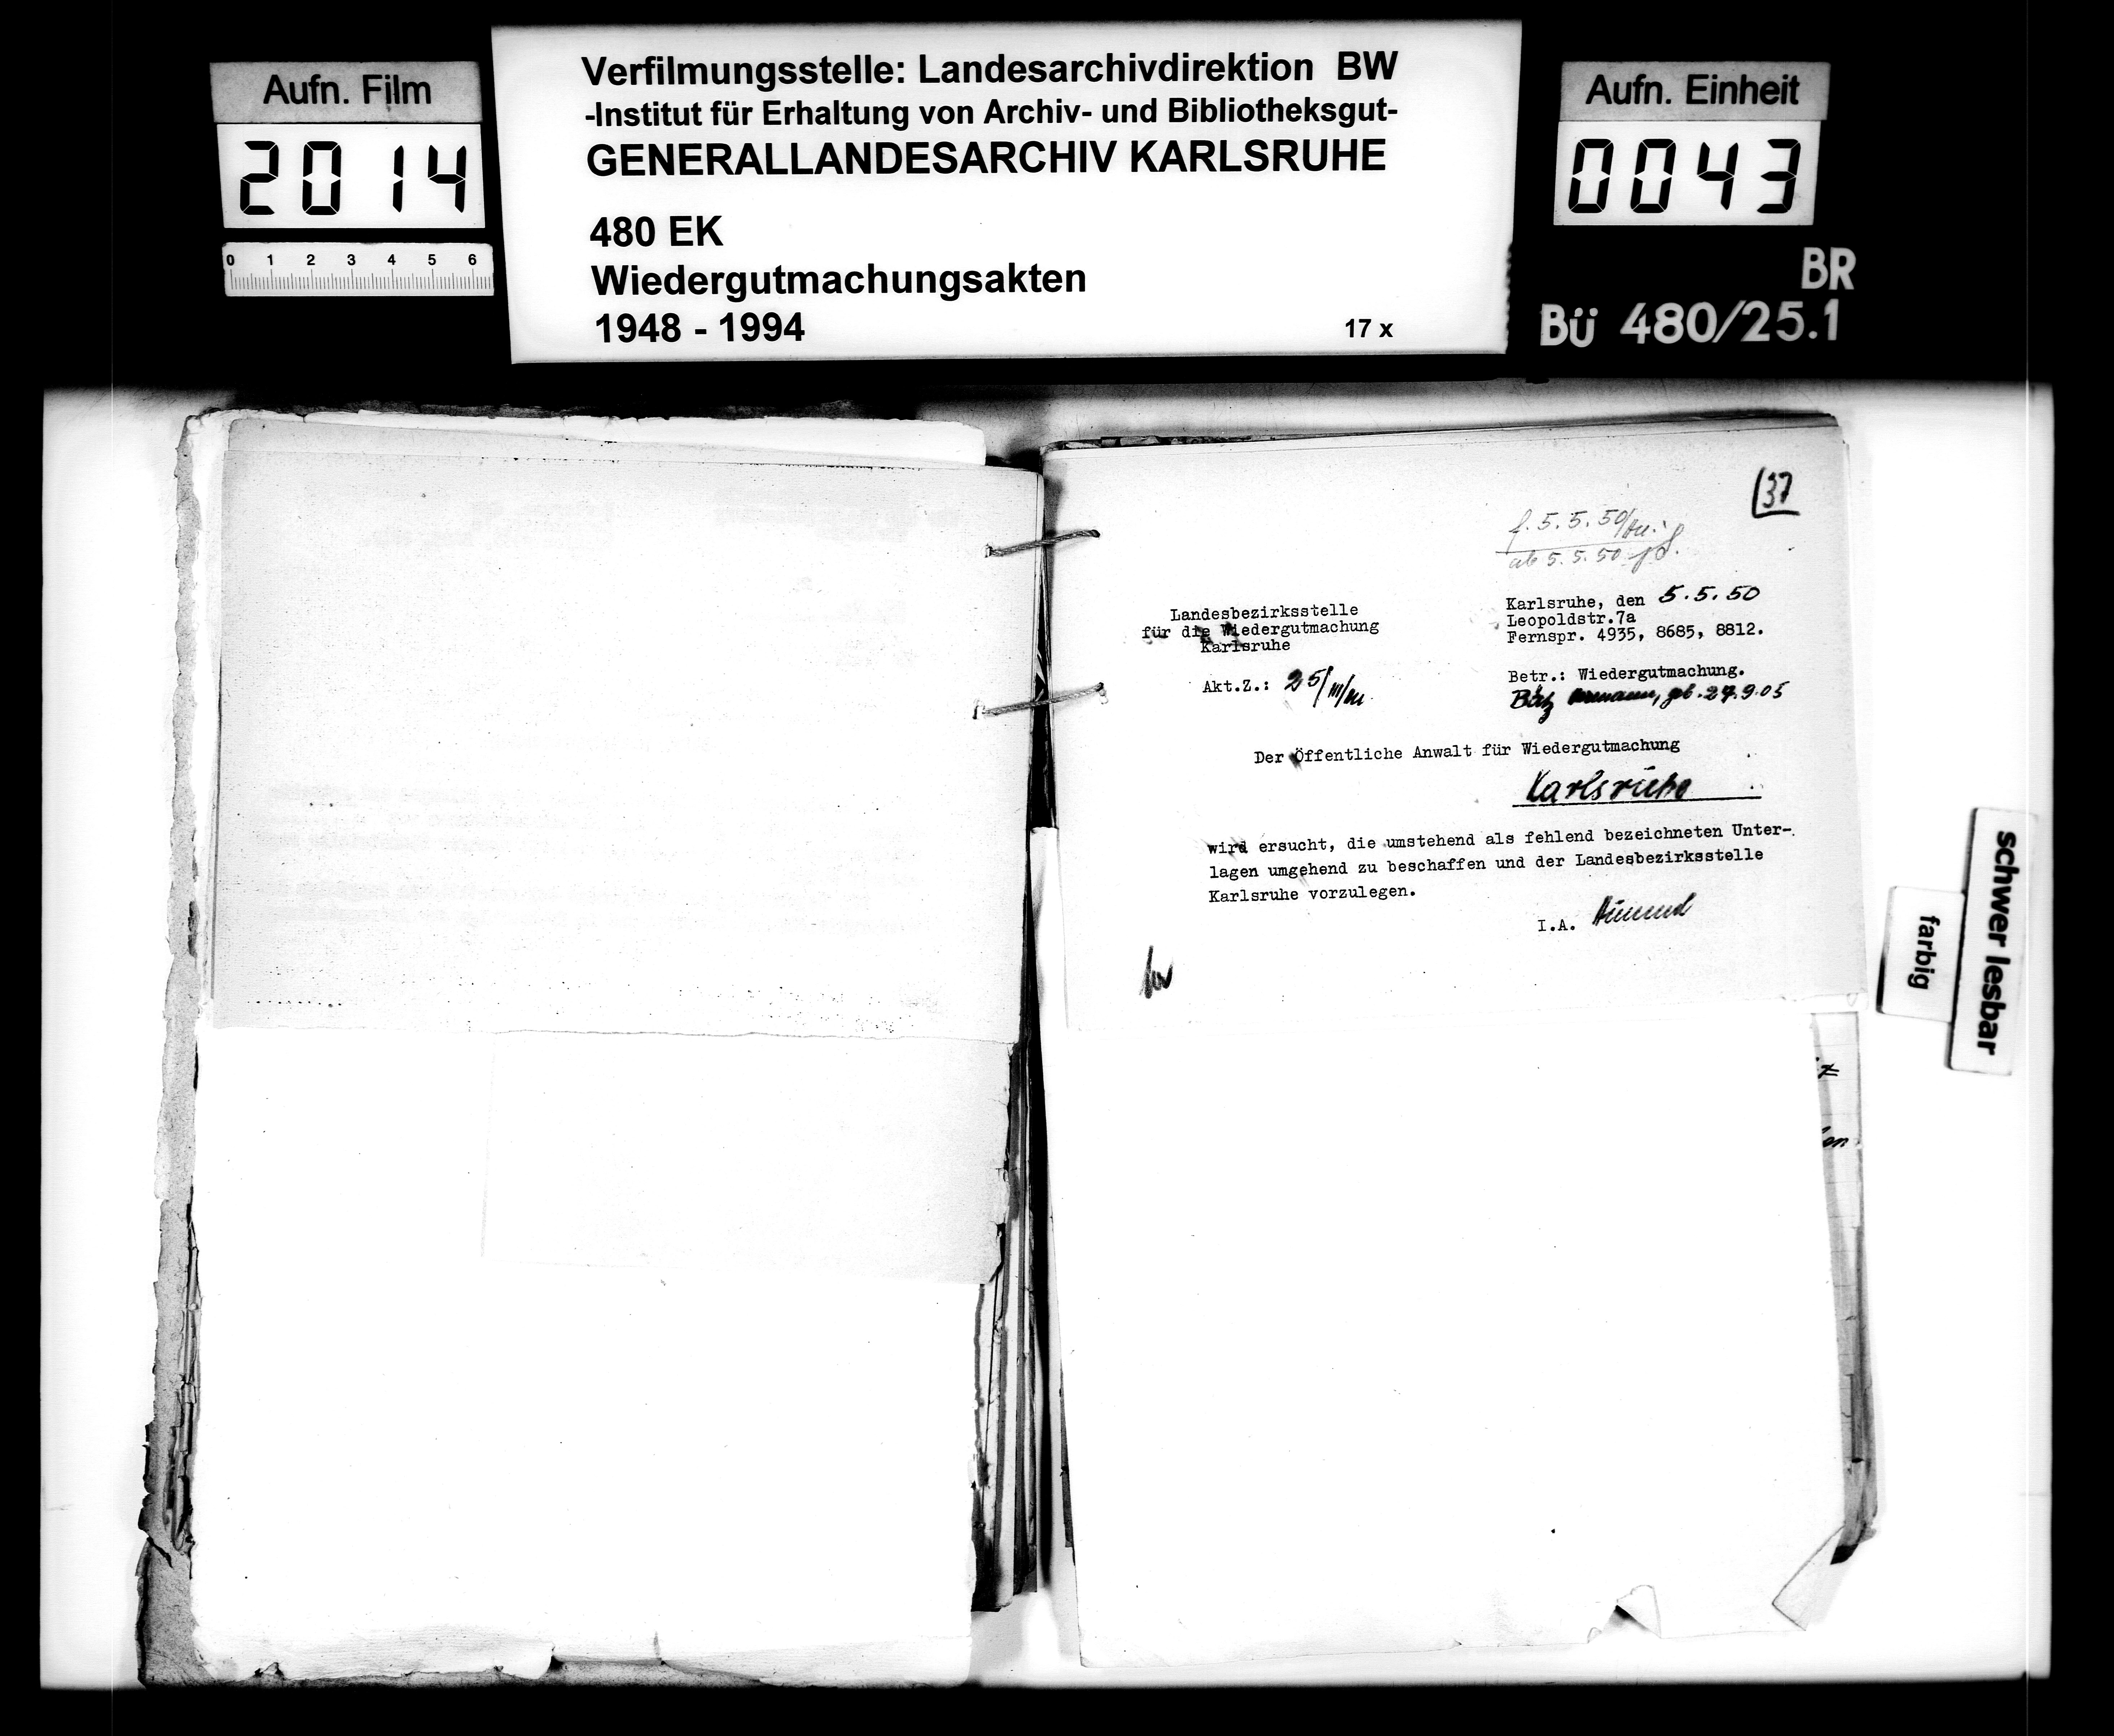 Aufn. Film
2014
0 1 2 3 4 5 6
Verfilmungsstelle: Landesarchivdirektion BW
-Institut für Erhaltung von Archiv- und Bibliotheksgut-
GENERALLANDESARCHIV KARLSRUHE
480 EK
Wiedergutmachungsakten
1948 - 1994
17 x
Aufn. Einheit
0043
BR
Bü 480/25.1
37
f. 5.5.50
ab 5.5.50
Landesbezirksstelle
für die Wiedergutmachung
Karlsruhe
Akt.Z.: 25/III
Karlsruhe, den 5.5.50
Leopoldstr.7a
Fernspr. 4935, 8685, 8812.
Betr.: Wiedergutmachung.
geb. 27.9.05
Der Öffentliche Anwalt für Wiedergutmachung
Karlsruhe
wird ersucht, die umstehend als fehlend bezeichneten Unter-
lagen umgehend zu beschaffen und der Landesbezirksstelle
Karlsruhe vorzulegen.
I.A.
schwer lesbar
farbig